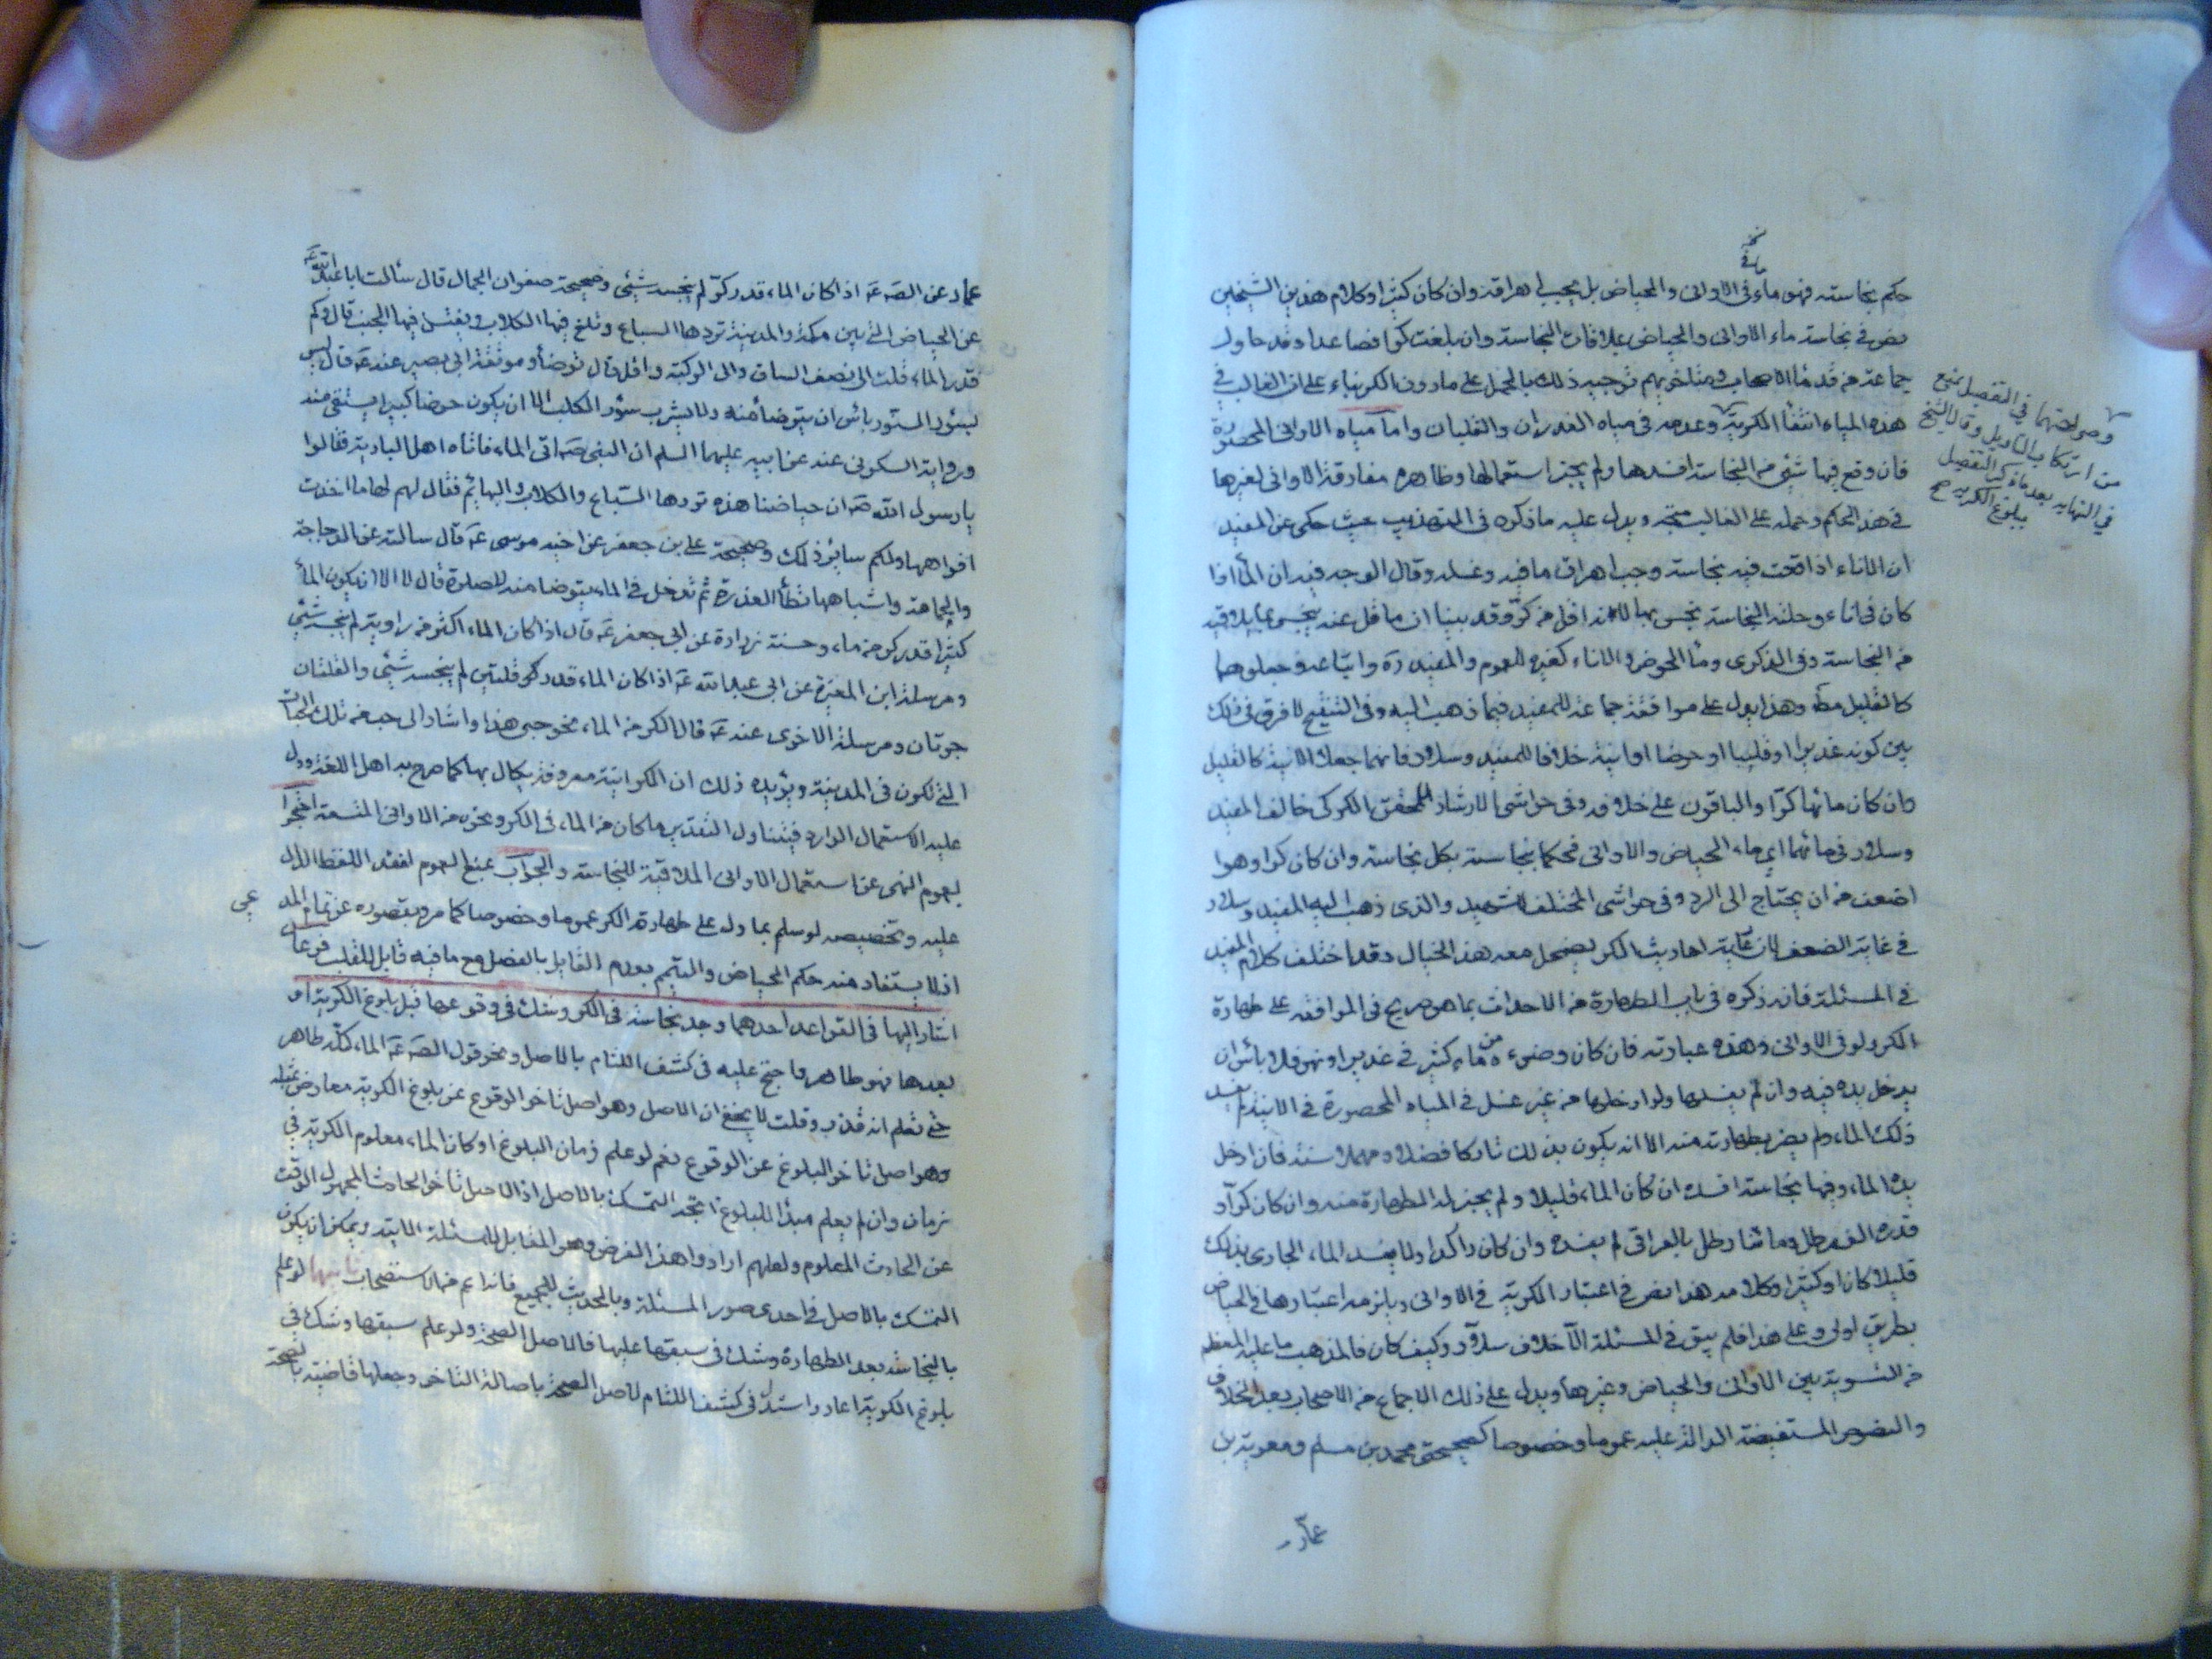 حكم بنجاسته فهو ماء فى الاوانى والحياض بل يجب اهراقه وان كان كثيرا وكلام هذين الشيخين
فى نجاسة ماء الاوانى والحياض بملاقات النجاسة وان بلغت كرا فصاعدا وقد حاول
جماعة من الاصحاب توجيه ذلك بالحمل على مادون الكر بناء على ان الغالب فى
هذه المياه انتفأ الكرية وعدمه فى مياه الغدران والقلبان واما مياه الاوانى المحصورة
فان وقع فيها شئ من النجاسة افسدها ولم يجز استعمالها وظاهره مفارقة الاوانى لغيرها
فى هذا الحكم وحمله على الغالب متجه ويدل عليه ما ذكره فى التهذيب حيث حكى عن المفيد
ان الاناء اذا وقعت فيه نجاسة وجب اهراق ما فيه وغسله وقال الوجه فيه ان المأ اذا
كان فى اناء وحلته النجاسة نجس بها لانه اقل من كر وقد بينا ان ما قل عنه ينجس بما يلاقيه
من النجاسة وفى الذكرى ومأ الحوض والاناء كغيره للعموم والمفيد ره واتباعه جعلوهما
كالقليل مط وهذا يدل على موافقة جماعة للمفيد فيما ذهب اليه وفى التنقيح لا فرق فى ذلك
بين كونه غديرا او قليبا او حوضا او انية خلافا للمفيد وسلار فانهما جعلا الانية كالقليل
وان كان مائها كرا والباقون على خلافه وفى حواشى الارشاد للمحقق الكركى خالف المفيد
وسلار فى مائهما اى ماء الحياض والاوانى فحكما بنجاسته بكل نجاسة وان كان كرا وهوا
اضعف من ان يحتاج الى الرد وفى حواشى المختلف للشهيد والذى ذهب اليه المفيد وسلار
فى غاية الضعف لان احاديث الكر يضمحل معه هذا الخيال وقد اختلف كلام المفيد
فى المسئلة فانه ذكره فى باب الطهارة من الاحداث بما هو صريح فى الموافقة على طهارة
الكر ولو فى الاوانى وهذه عبارته فان كان وضوءه من ماء كثير فى غدير او نهر فلا بأس ان
يدخل يده فيه وان لم يغسلها ولو ادخلها من غير غسل فى المياه المحصورة فى الانية لم يفسد
ذلك الماء ولم يضر بطهارته منه الا انه يكون بذلك تاركا فضلا ومهملا سنة فان ادخل
يده الماء وفيها نجاسة افسده ان كان الماء قليلا ولم يجز له الطهارة منه وان كان كرا و
قدره الف رطل ومائتا رطل بالعراقى لم يفسده وان كان راكدا ولا يفسد الماء الجارى بذلك
قليلا كان او كثيرا وكلامه هذا نص فى اعتبار الكرية فى الاوانى ويلزمه اعتبارها فى الحياض
بطريق اولى وعلى هذا فلم يبق فى المسئلة الا خلاف سلار وكيف كان فالمذهب ما عليه المعظم
من التسوية بين الاوانى والحياض وغيرها ويدل على ذلك الاجماع من الاصحاب بعد الخلاف
والنصوص المستفيضة الدالة عليه عموما وخصوصا كصحيحتى محمد بن مسلم ومعوية بن
عمار
فى التفصيل يمنع
من ارتكاب التاويل وقال الشيخ
فى النهايه بعد ما ذكر التفصيل
ببلوغ الكريه صح
عمار عن الص ع اذا كان الماء قدر كر لم ينجسه شئ وصحيحة صفوان الجمال قال سألت ابا عبد الله ع
عن الحياض التى بين مكة والمدينة تردها السباع وتلغ فيها الكلاب ويغتسل فيها الجنب قال وكم
قدر الماء قلت الى نصف الساق والى الركبة واقل قال توضأ وموثقة ابى بصير عنه ع قال ليس
بسؤر السنور بأس ان يتوضأ منه ولا يشرب سؤر الكلب الا ان يكون حوضا كبيرا يستقى منه
ورواية السكونى عنه عن ابيه عليهما السلم ان النبى ص اتى الماء فاتاه اهل البادية فقالوا
يا رسول الله ص ان حياضنا هذه تردها السباع والكلاب والبهائم فقال لهم لها ما اخذت
افواهها ولكم سائر ذلك وصحيحة على بن جعفر عن اخيه موسى ع قال سالته عن الدجاجة
والحمامة واشباهها تطأ العذرة ثم تدخل فى الماء يتوضا منه للصلوة قال لا الا ان يكون المأ
كثيرا قدر كر من ماء وحسنة زرارة عن ابى جعفر ع قال اذا كان الماء اكثر من راوية لم ينجسه شئ
ومرسلة ابن المغيرة عن ابى عبد الله ع اذا كان الماء قدر قلتين لم ينجسه شئ والقلتان
جرتان ومرسلة الاخرى عنه ع قال الكر من الماء نحو حبى هذا واشار الى حب من تلك الحباب
التى تكون فى المدينة ويؤيده ذلك ان الكر انية معروفة يكال بها كما صرح به اهل اللغة ودل
عليه الاستعمال الوارد فيتناول التقدير ما كان من الماء فى الكر ونحوه من الاوانى المتسعة احتجوا
لعموم النهى عن استعمال الاوانى الملاقية للنجاسة والجواب بمنع العموم لفقد اللفظ الدال
عليه وتخصيصه لو سلم بما دل على طهارة الكر عموما وخصوصا كما مر وبقصوره عن تمام المد
عى
اذ لا يستفاد منه حكم الحياض والتتميم بعدم القايل بالفصل مع ما فيه قابل للقلب فرعان
اشار اليها فى القواعد احدهما وجد نجاسة فى الكر وشك فى وقوعها قبل بلوغ الكرية او
بعدها فهو طاهر واحتج عليه فى كشف اللثام بالاصل ونحو قول الص ع الماء كله طاهر
حتى تعلم انه قذر وقلت لا يخفى ان الاصل وهو اصل تاخر الوقوع عن بلوغ الكرية معارض بمثله
وهو اصل تاخر البلوغ عن الوقوع نعم لو علم زمان البلوغ او كان الماء معلوم الكرية فى
زمان وان لم يعلم مبدأ البلوغ اتجه التمسك بالاصل اذ الاصل تاخر الحادث المجهول الوقت
عن الحادث المعلوم ولعلهم ارادوا هذا الفرض وهو المقابل للمسئلة الاتية ويمكن ان يكون
التمسك بالاصل فى احدى صور المسئلة وبالحديث للجميع فانه اعم من الاستصحاب ثانيها لو علم
بالنجاسة بعد الطهارة وشك فى سبقها عليها فالاصل الصحة ولو علم سبقها وشك فى
بلوغ الكرية اعاد واستدل فى كشف اللثام لاصل الصحة باصالة التاخر وجعلها قاضية بالصحة